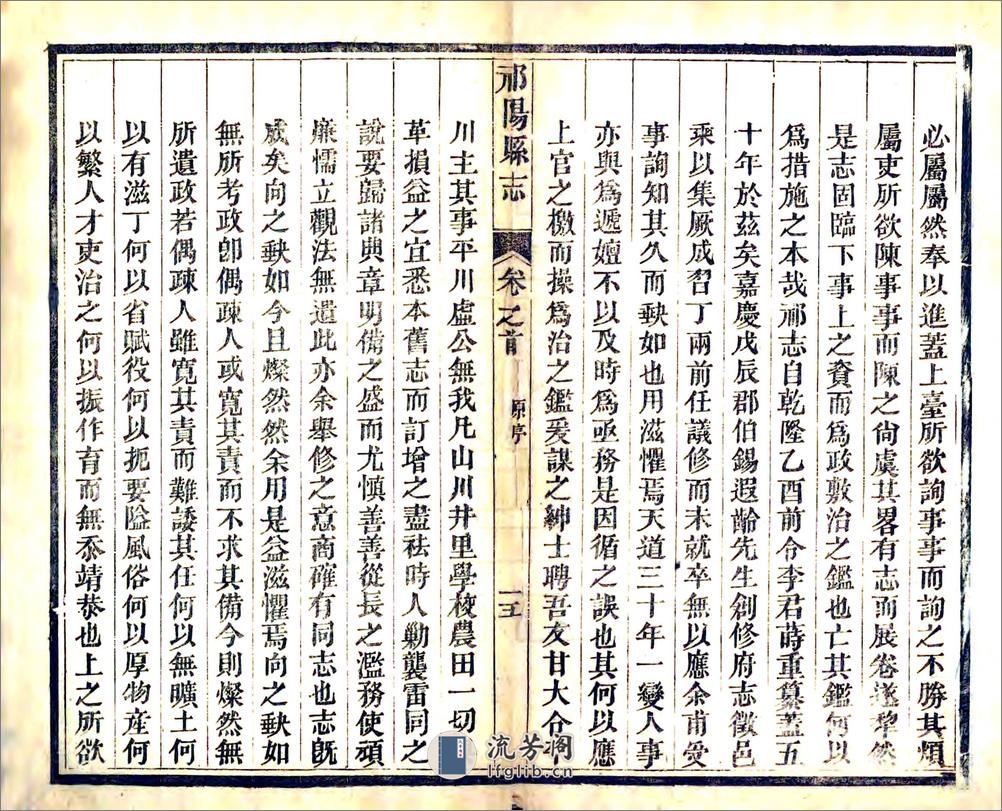 必屬屬然奉以進蓋上臺所欲詢事事而詢之不勝其煩
屬吏所欲陳事事而陳之尚虞其畧有志而展卷遂犂然
是志固臨下事上之資而爲政敷治之鑑也亡其鑑何以
爲措施之本哉祁志自乾隆乙酉前令李君蒔重纂蓋五
十年於茲矣嘉慶戊辰郡伯錫遐齡先生創修府志徵邑
乘以集厥成習丁兩前任議修而未就卒無以應余甫受
事詢知其久而缺如也用滋懼焉天道三十年一變人事
亦與爲遞嬗不以及時爲亟務是因循之誤也其何以應
上官之檄而操爲治之鑑爰謀之紳士聘吾友甘大令平
祁陽縣志
卷之首
原序
一五
川主其事平川虛公無我凡山川井里學校農田一切
革損益之宜悉本舊志而訂增之盡袪時人勦襲雷同之
說要歸諸典章明備之盛而尤慎善善從長之濫務使頑
廉懦立觀法無遺此亦余舉修之意商確有同志也志旣
成矣向之缺如今且燦然然余用是益滋懼焉向之缺如
無所考政卽偶疎人或寬其責而不求其備今則燦然無
所遺政若偶疎人雖寬其責而難諉其任何以無曠土何
以有滋丁何以省賦役何以扼要隘風俗何以厚物產何
以繁人才吏治之何以振作有而無忝靖恭也上之所欲
流芳阁
lfglib.cn